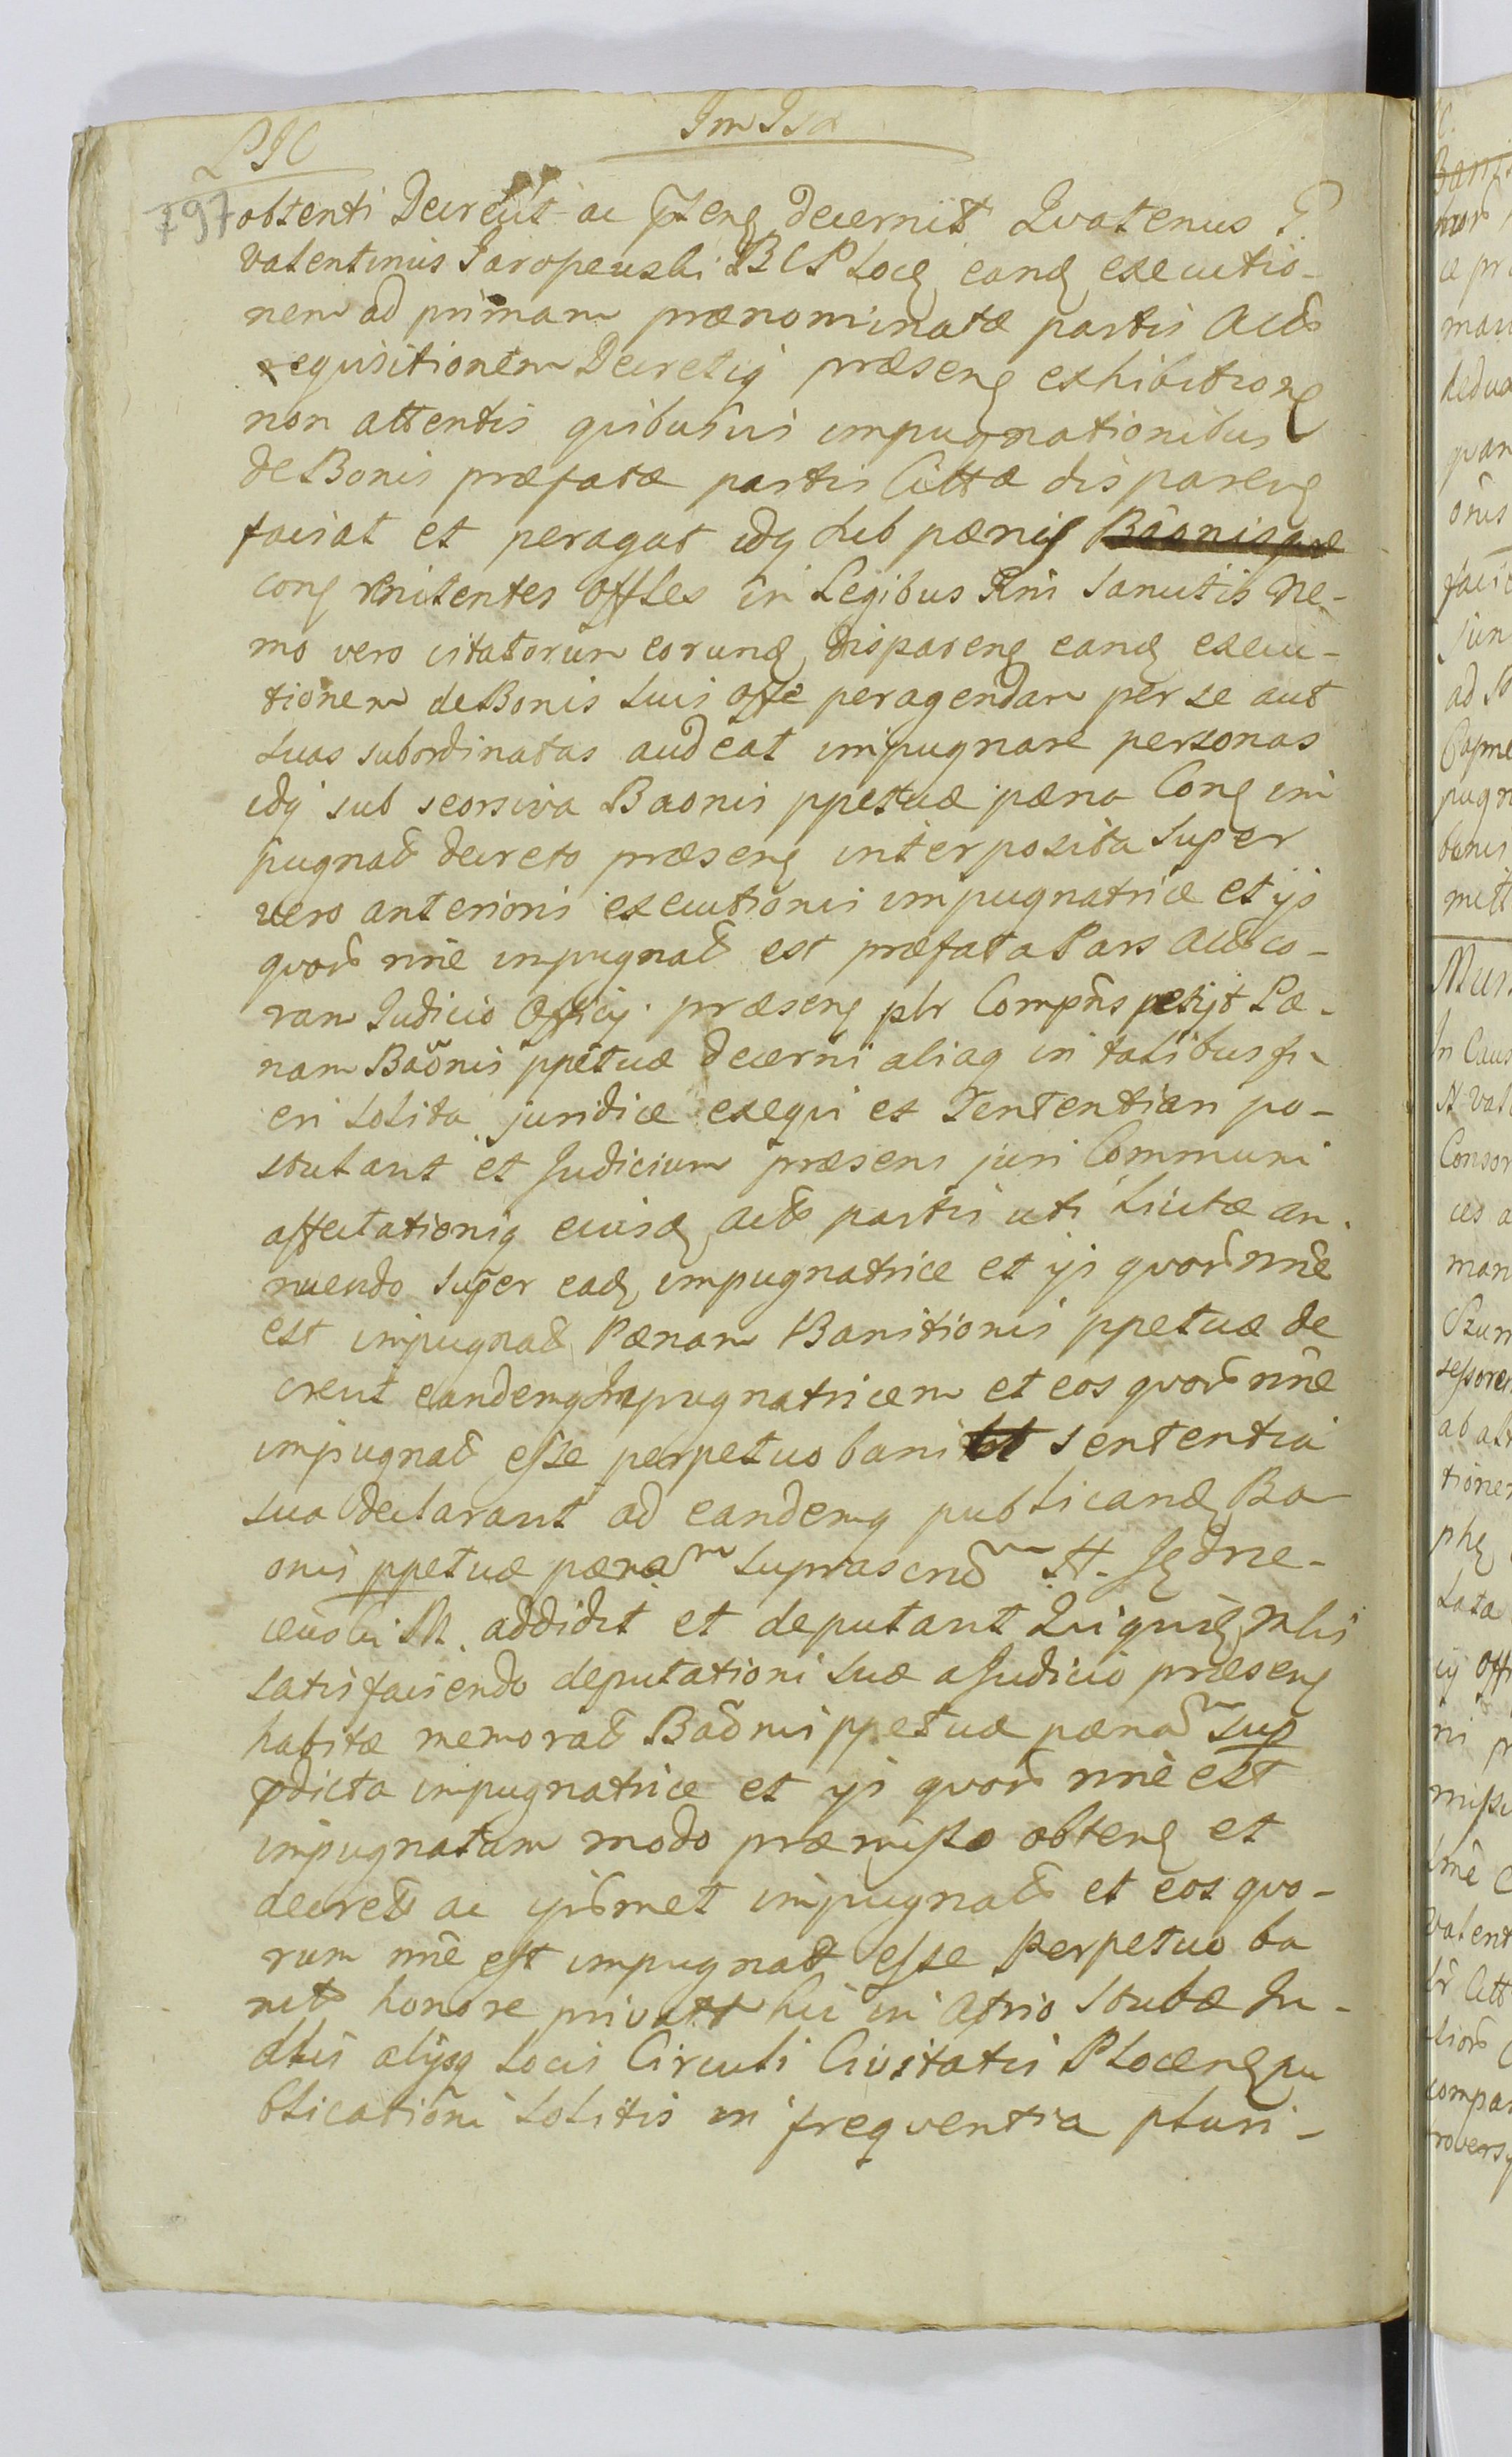 PJC
797
obtenti Decrevit ac p̃sens decernit Quatenus P.
Valentinus Jaropewski B C P Loce eand executio-
nem ad primam prænominatæ partis Actõ
requisitionem Decretiq præsens exhibitione
non attentis quibusvis impugnationibus
de Bonis præfatæ partis Cittæ disparens
faciat et peragat idq sub pænis
cont rnitentes offles in Legibus Rni sancitis Ne-
mo vero citatorum eorund disparens eand execu-
tionem de Bonis suis offe peragendam per se aut
suas subordinatas audeat impugnare personas
idq sub seorsiva Baonis ppetuæ pæna Cont im
pugnat decreto præsens interposita super
vero anterioris executionis impugnatrice et ijs
quorũ nñe impugnat est præfata Pars Actõ co-
ram Judicio Officij præsens plr Compñs petijt Pæ-
nam Baõnis ppetuæ decerni aliaq in talibus fi-
eri solita juridice exequi et Sententiam po-
stulavit et Judicium præsens juri Communi
affectationiq eiusd Actõ partis uti licitæ an-
nuendo super ead impugnatrice et ijs quorũ nñe
est impugnat Pænam Banitionis ppetuæ de
crevit eandemq Impugnatricem et eos quorũ nñe
impugnat esse perpetuo banit sententia
sua declaravit ad eandemq publicand Ba
onis ppetuæ pænam suprascrid H. Jędrze-
iewski M. addidit et deputavit Qui quid Mlis
satisfaciendo deputationi suæ a Judicio præsens
habitæ memorat Baõnis ppetuæ pænam sup
p̃dicta impugnatrice et ijs quorũ nñe est
impugnatum modo præmisso obtent et
decretõ ac ipsãmet impugnatõ et eos quo-
rum nñe est impugnat esse perpetuo ba
nitõ honore privat hic in Atrio Stubæ Ju-
dlis alijsq Locis Circuli Civitatis Plocens pu
blicationi solitis in frequentia pluri-